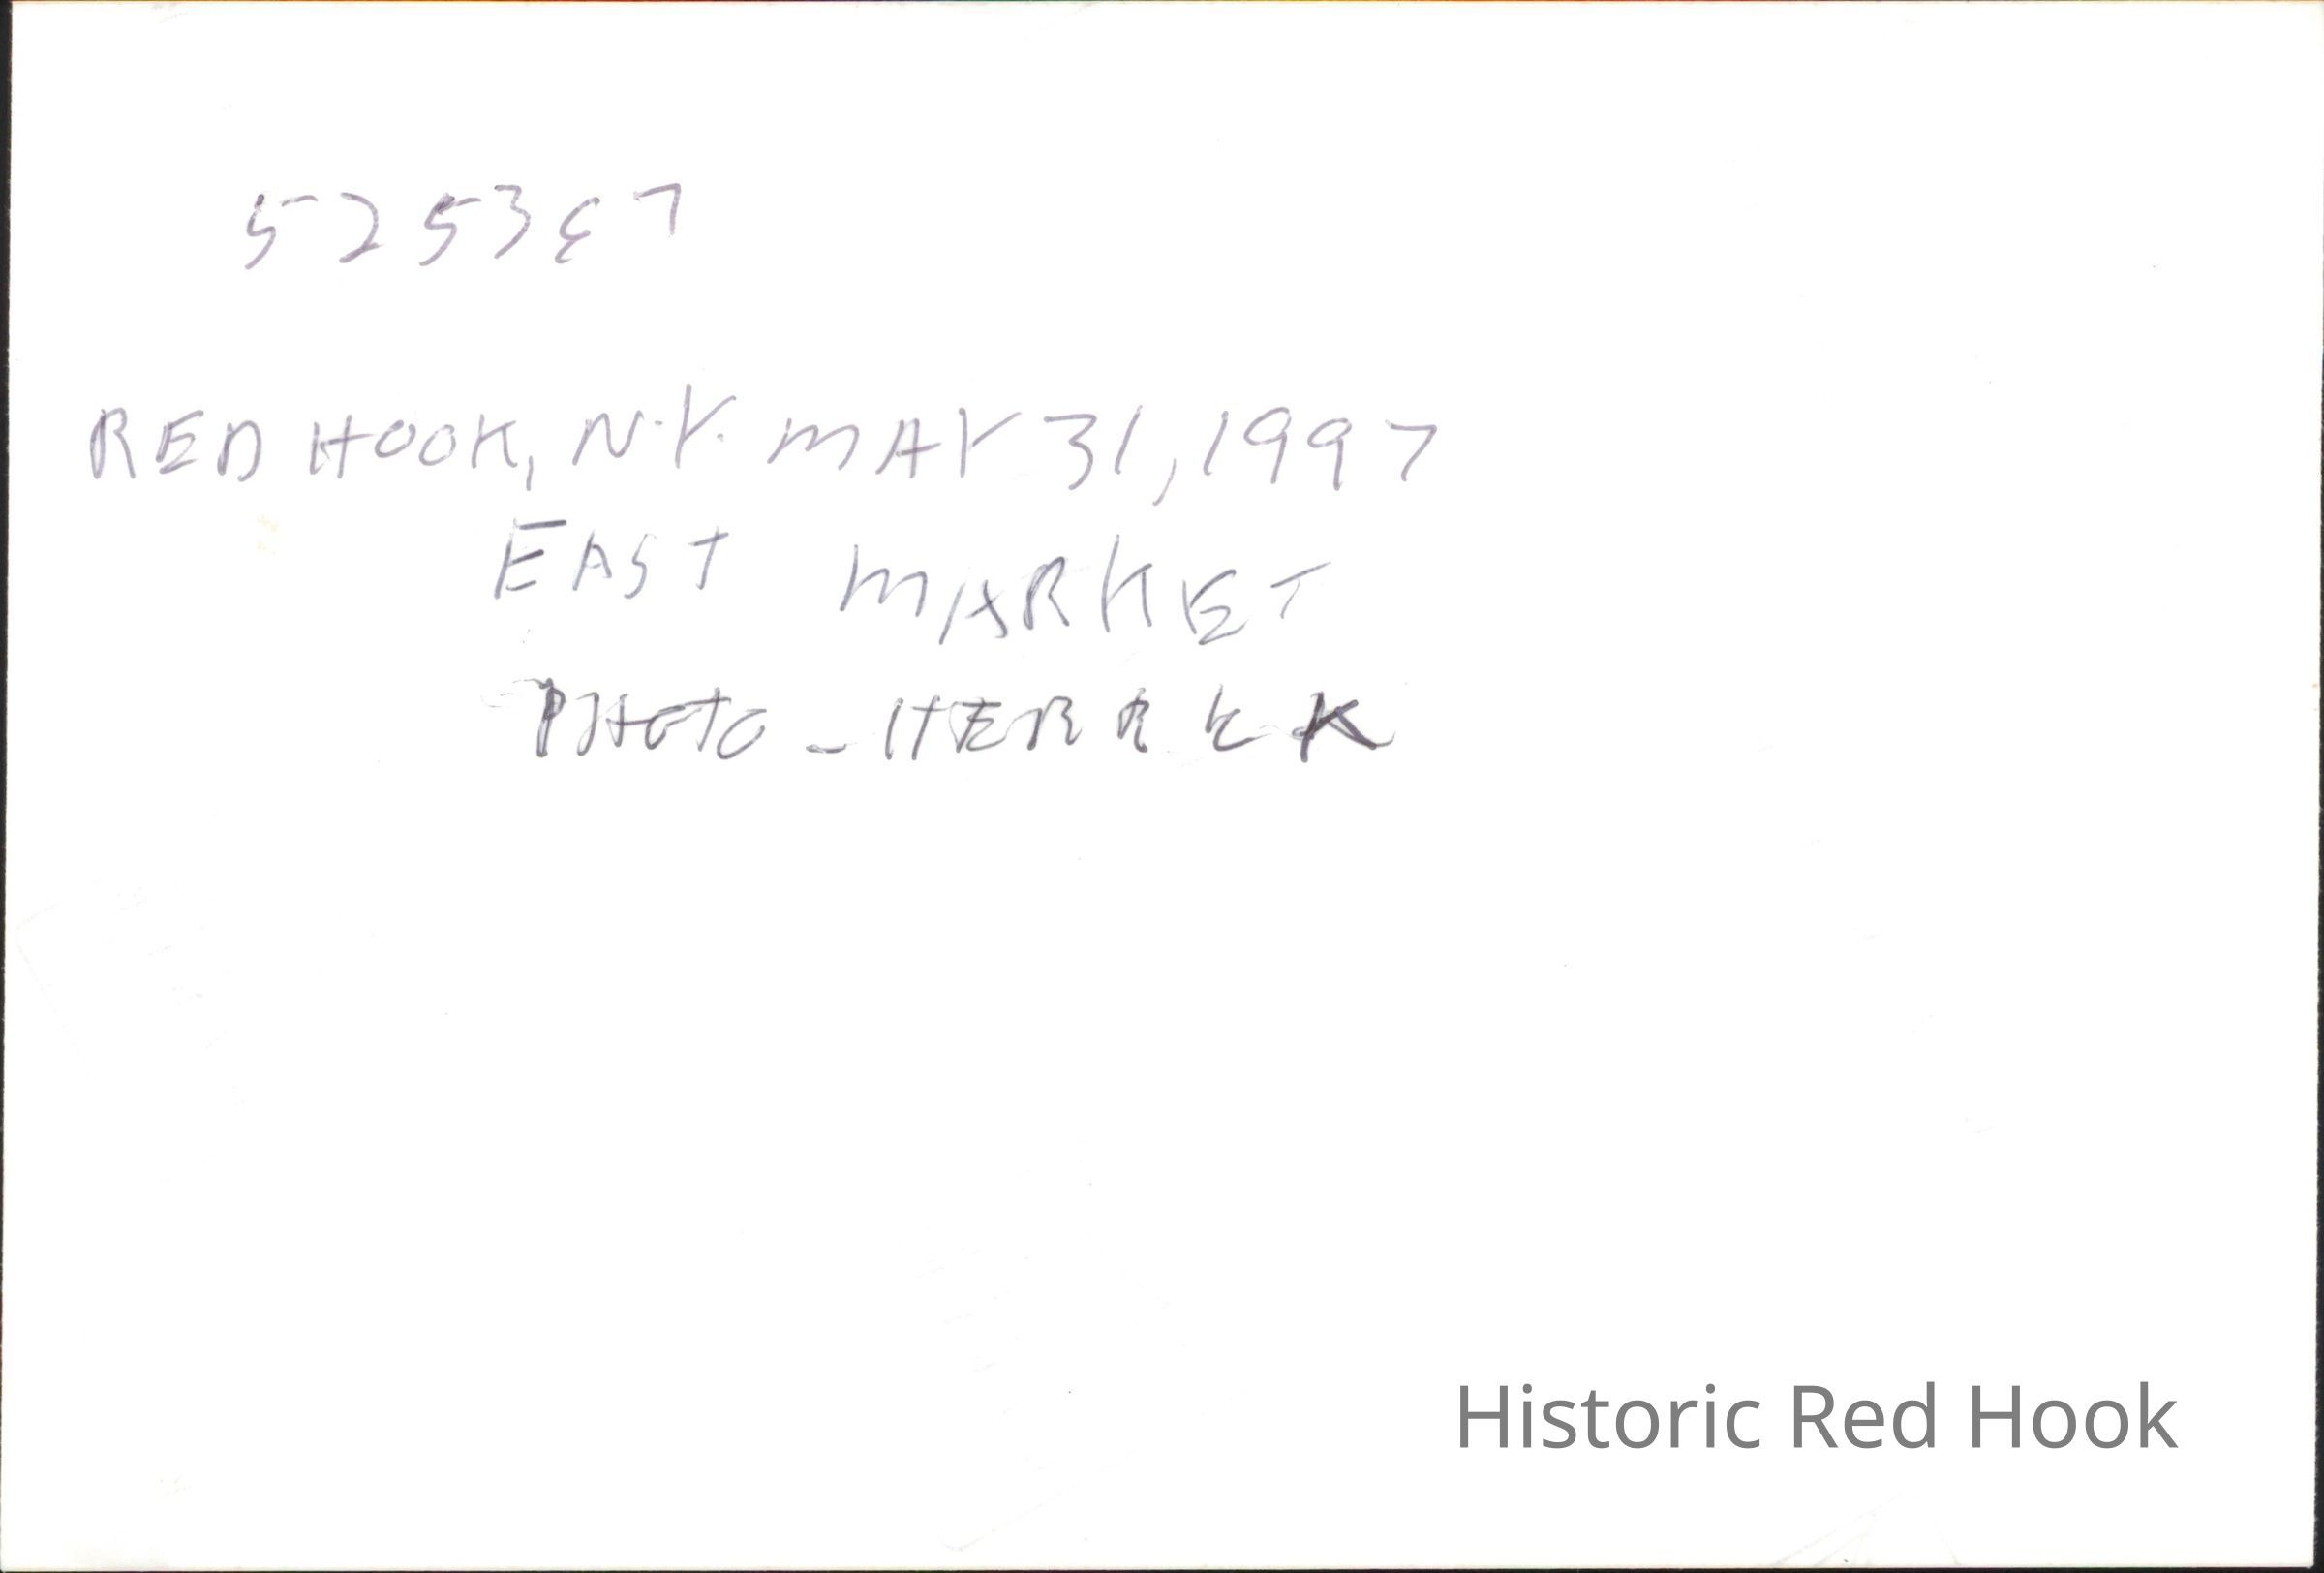 RED HOOK, N.Y. MAY 31, 1997
EAST MARKET
PHOTO -
Historic Red Hook